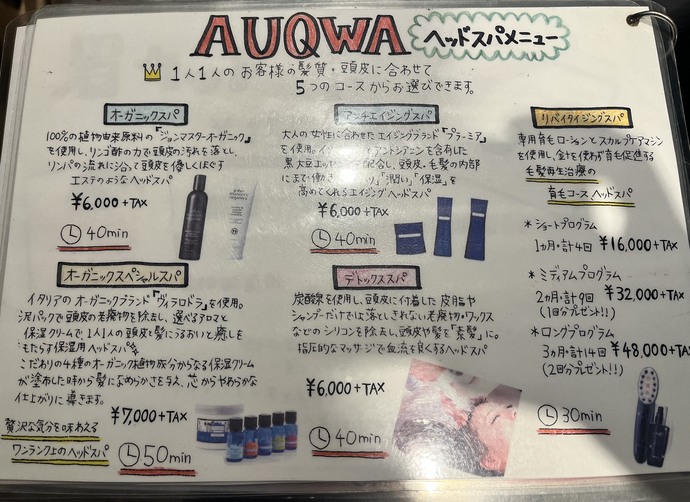 AUQWA ヘッドスパメニュー
1人1人のお客様の髪質・頭皮に合わせて
5つのコースからお選びできます。
オーガニックスパ
100%の植物由来原料の「ジョンマスターオーガニック」
を使用し、リンゴ酢の力で頭皮の汚れを落とし、
リンパの流れに沿って頭皮を優しくほぐす
エステのようなヘッドスパ
¥6,000+TAX
40min
アンチエイジングスパ
大人の女性に合わせたエイジングブランド「プラーミア」
を使用し、アントシアニンを含有した
黒大豆エキス配合し、頭皮、毛髪の内部
にまで働き 「潤い」「保湿」を
高めてくれるエイジングヘッドスパ
¥6,000+TAX
40min
リバイタイジングスパ
専用育毛ローションとスカルプケアマシン
を使用し、針を使わず育毛促進する
毛髪再生治療の
育毛コースヘッドスパ
*ショートプログラム
1ヵ月・計4回 ¥16,000+TAX
*ミディアムプログラム
2ヵ月・計9回 ¥32,000+TAX
(1回分プレゼント!!)
*ロングプログラム
3ヵ月・計14回 ¥48,000+TAX
(2回分プレゼント!!)
30min
オーガニックスペシャルスパ
イタリアのオーガニックブランド「ヴィラロドラ」を使用。
泥パックで頭皮の老廃物を除去し、選べるアロマと
保湿クリームで1人1人の頭皮と髪にうるおいと癒しを
もたらす保湿用ヘッドスパ。
こだわりの4種のオーガニック植物成分からなる保湿クリーム
が塗布した時から髪になめらかさを与え、芯からやわらかな
仕上がりに導きます。
贅沢な気分を味わえる
ワンランク上のヘッドスパ
¥7,000+TAX
50min
デトックススパ
炭酸線を使用し、頭皮に付着した皮脂や
シャンプーだけでは落としきれない老廃物・ワックス
などのシリコンを除去し、頭皮や髪を「素髪」に。
指圧的なマッサージで血流を良くするヘッドスパ
¥6,000+TAX
40min